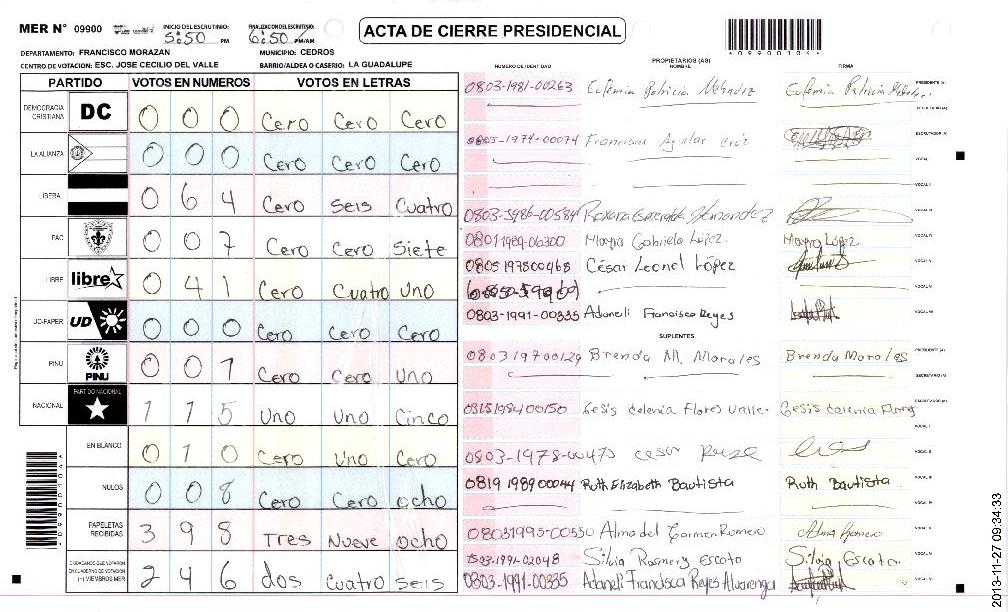 MER N° 09900
INICIO DEL ESCRUTINIO: 5:50 PM
FINALIZACION DEL ESCRUTINIO: 6:50 PM/AM
ACTA DE CIERRE PRESIDENCIAL
*09900104*
DEPARTAMENTO: FRANCISCO MORAZAN
MUNICIPIO: CEDROS
CENTRO DE VOTACION: ESC. JOSE CECILIO DEL VALLE
BARRIO/ALDEA O CASERIO: LA GUADALUPE
PARTIDO VOTOS EN NUMEROS VOTOS EN LETRAS
DEMOCRACIA CRISTIANA DC 0 0 0 Cero Cero Cero
LA ALIANZA 0 0 0 Cero Cero Cero
LIBERAL 0 6 4 Cero Seis Cuatro
PAC 0 0 7 Cero Cero Siete
LIBRE libre 0 4 1 Cero Cuatro Uno
UD-FAPER UD 0 0 0 Cero Cero Cero
PINU PINU 0 0 1 Cero Cero Uno
NACIONAL PARTIDO NACIONAL 1 1 5 Uno Uno Cinco
EN BLANCO 0 1 0 Cero Uno Cero
NULOS 0 0 8 Cero Cero ocho
PAPELETAS RECIBIDAS 3 9 8 Tres Nueve ocho
CIUDADANOS QUE VOTARON EN CUADERNO DE VOTACION (+) MIEMBROS MER 2 4 6 dos Cuatro Seis
PROPIETARIOS (AS)
NUMERO DE IDENTIDAD NOMBRE FIRMA
0803-1981-00263 Eufemia Patricia PRESIDENTE (A)
SECRETARIO (A)
0805-1974-00074 Francisco Aguilar Cruz ESCRUTADOR (A)
VOCAL I
VOCAL II
0803-1986-00584 Roxana Esmeralda Hernandez VOCAL III
0801-1989-06300 Mayra Gabriela López Mayra López VOCAL IV
0805197800468 César Leonel López VOCAL V
VOCAL VI
0803-1991-00335 Adaneli Francisca Reyes VOCAL VII
SUPLENTES
080319700129 Brenda M. Morales Brenda Morales PRESIDENTE (A)
SECRETARIO (A)
0815198400150 Gesis Celenia Flores Valle Gesis Celenia Flores ESCRUTADOR (A)
VOCAL I
0803-1978-00475 Cesar VOCAL II
0819 1989 00044 Ruth Elizabeth Bautista Ruth Bautista VOCAL III
VOCAL IV
08031995-00550 Alma del Carmen Romero Alma Romero VOCAL V
1503-1991-02048 Silvia Rosmery escoto Silvia Escoto VOCAL VI
0803-1991-00335 Adaneli Francisca Reyes Alvarenga VOCAL VII
*09900104*
2013-11-27 09:34:33